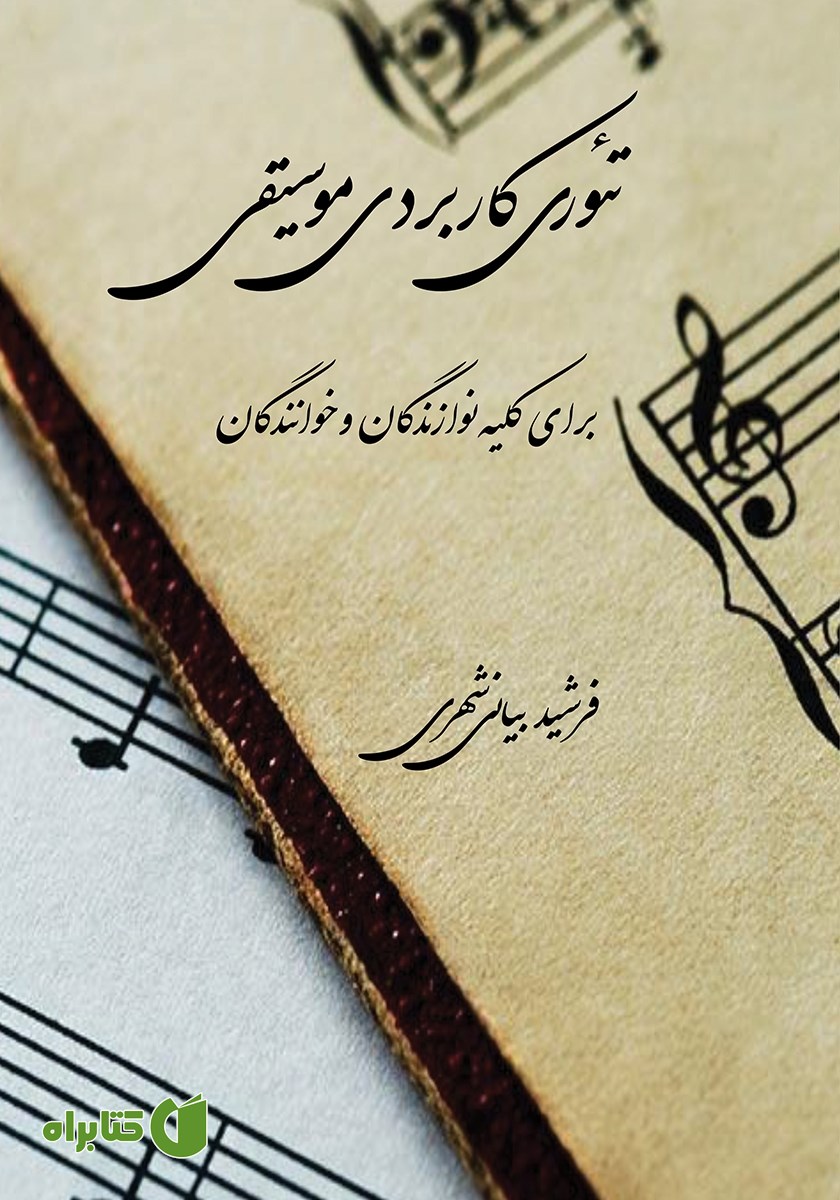 تئوری کاربردی موسیقی
برای کلیه نوازندگان و خوانندگان
فرشید بیانی شهری
کتابراه